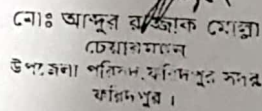 মোঃ আব্দুর রাজ্জাক মোল্লা
চেয়ারম্যান
উপজেলা পরিষদ, ফরিদপুর সদর
ফরিদপুর।